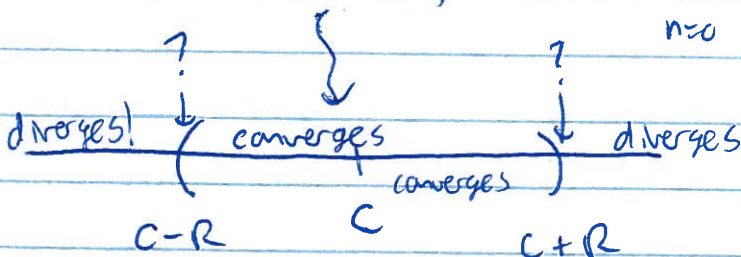 n=0
? ?
diverges! converges diverges
converges
C-R C C+R